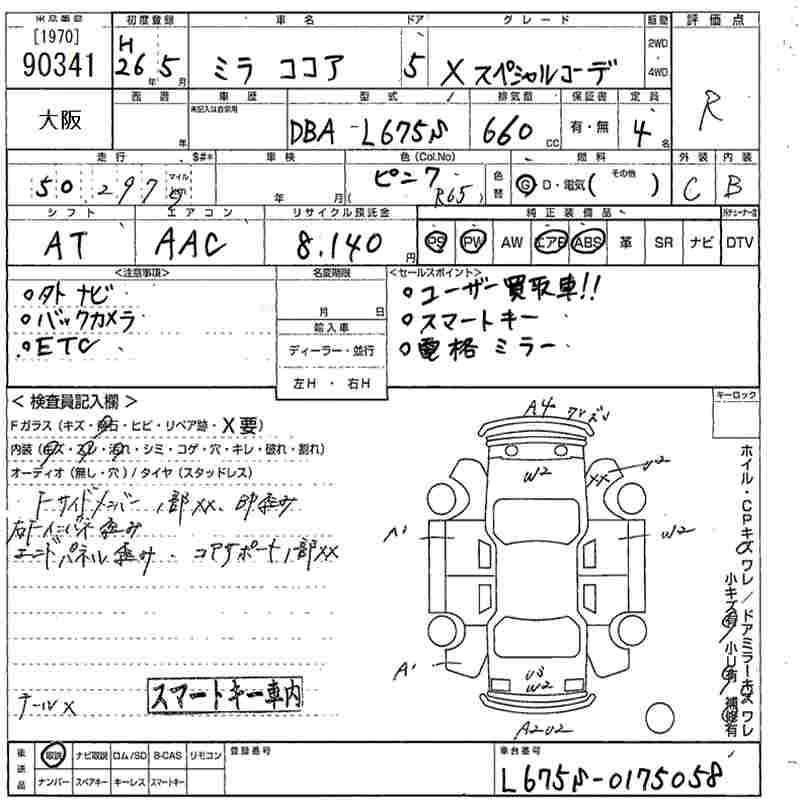 [1970]
90341
初度登録
H
26年5月
車名
ミラ ココア
ドア
5
グレード
X スペシャルコーデ
駆動
2WD
4WD
評価点
R
大阪
年
車歴
型式
DBA-L675S
排気量
660cc
保証書
有・無
定員
4名
走行
マイル
$#*
車検
年 月
色(Col.No)
ピンク
(R65)
色替
燃料
G D・電気( その他 )
外装
C
内装
B
シフト
AT
エアコン
AAC
リサイクル預託金
8.140円
純正装備品
PS PW AW エアB ABS 革 SR ナビ DTV
<注意事項>
○外ナビ
○バックカメラ
○ETC
名変期限
月 日
輸入車
ディーラー・並行
左H ・ 右H
<セールスポイント>
○ユーザー買取車!!
○スマートキー
○電格ミラー
キーロック
<検査員記入欄>
Fガラス(キズ・飛石・ヒビ・リペア跡・X要)
内装(キズ・スレ・汚れ・シミ・コゲ・穴・キレ・破れ・割れ)
オーディオ(無し・穴)/タイヤ(スタッドレス)
Fサイドメンバー1部XX、凹歪み
右Fインパネ歪み
エンドパネル歪み・コアサポート1部XX
スマートキー車内
A4
W2
XX
U2
A1
W2
A1
U3
W2
A2U2
ホイル・CPキズワレ/ドアミラーキズワレ
小キズ有 小U有 補修有
後送品
取説 ナビ取説 ロム/SD B-CAS リモコン
ナンバー スペアキー キーレス スマートキー
登録番号
車台番号
L675S-0175058